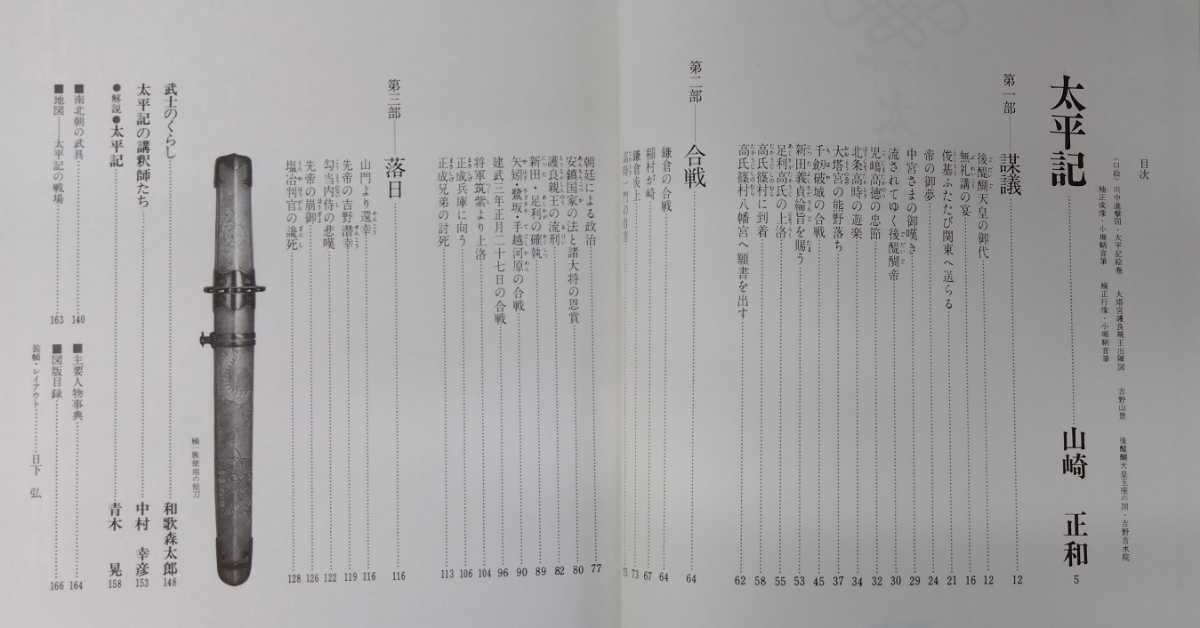 目次
太平記 山崎 正和 5
第一部──謀議 12
後醍醐天皇の御代 12
無礼講の宴 16
俊基ふたたび関東へ送らる 21
帝の御夢 24
中宮さまの御嘆き 29
流されてゆく後醍醐帝 30
児嶋高徳の忠節 32
北条高時の遊楽 34
大塔宮の熊野落ち 37
千劔破城の合戦 45
新田義貞綸旨を賜う 53
足利高氏の上洛 55
高氏篠村に到着 58
高氏篠村八幡宮へ願書を出す 62
第二部──合戦 64
鎌倉の合戦 64
稲村が崎 67
鎌倉炎上 73
73
朝廷による政治 77
安鎮国家の法と諸大将の恩賞 80
護良親王の流刑 82
新田・足利の確執 89
矢矧・鷺坂・手越河原の合戦 90
建武三年正月二十七日の合戦 96
将軍筑紫より上洛 104
正成兵庫に向う 106
正成兄弟の討死 113
第三部──落日 116
山門より還幸 116
先帝の吉野潜幸 119
勾当内侍の悲嘆 122
先帝の崩御 126
塩冶判官の讒死 128
武士のくらし 和歌森太郎 148
太平記の講釈師たち 中村 幸彦 153
●解説●太平記 青木 晃 158
■南北朝の武具 140
■主要人物事典 164
■地図──太平記の戦場 163
■図版目録 166
装幀・レイアウト 日下 弘